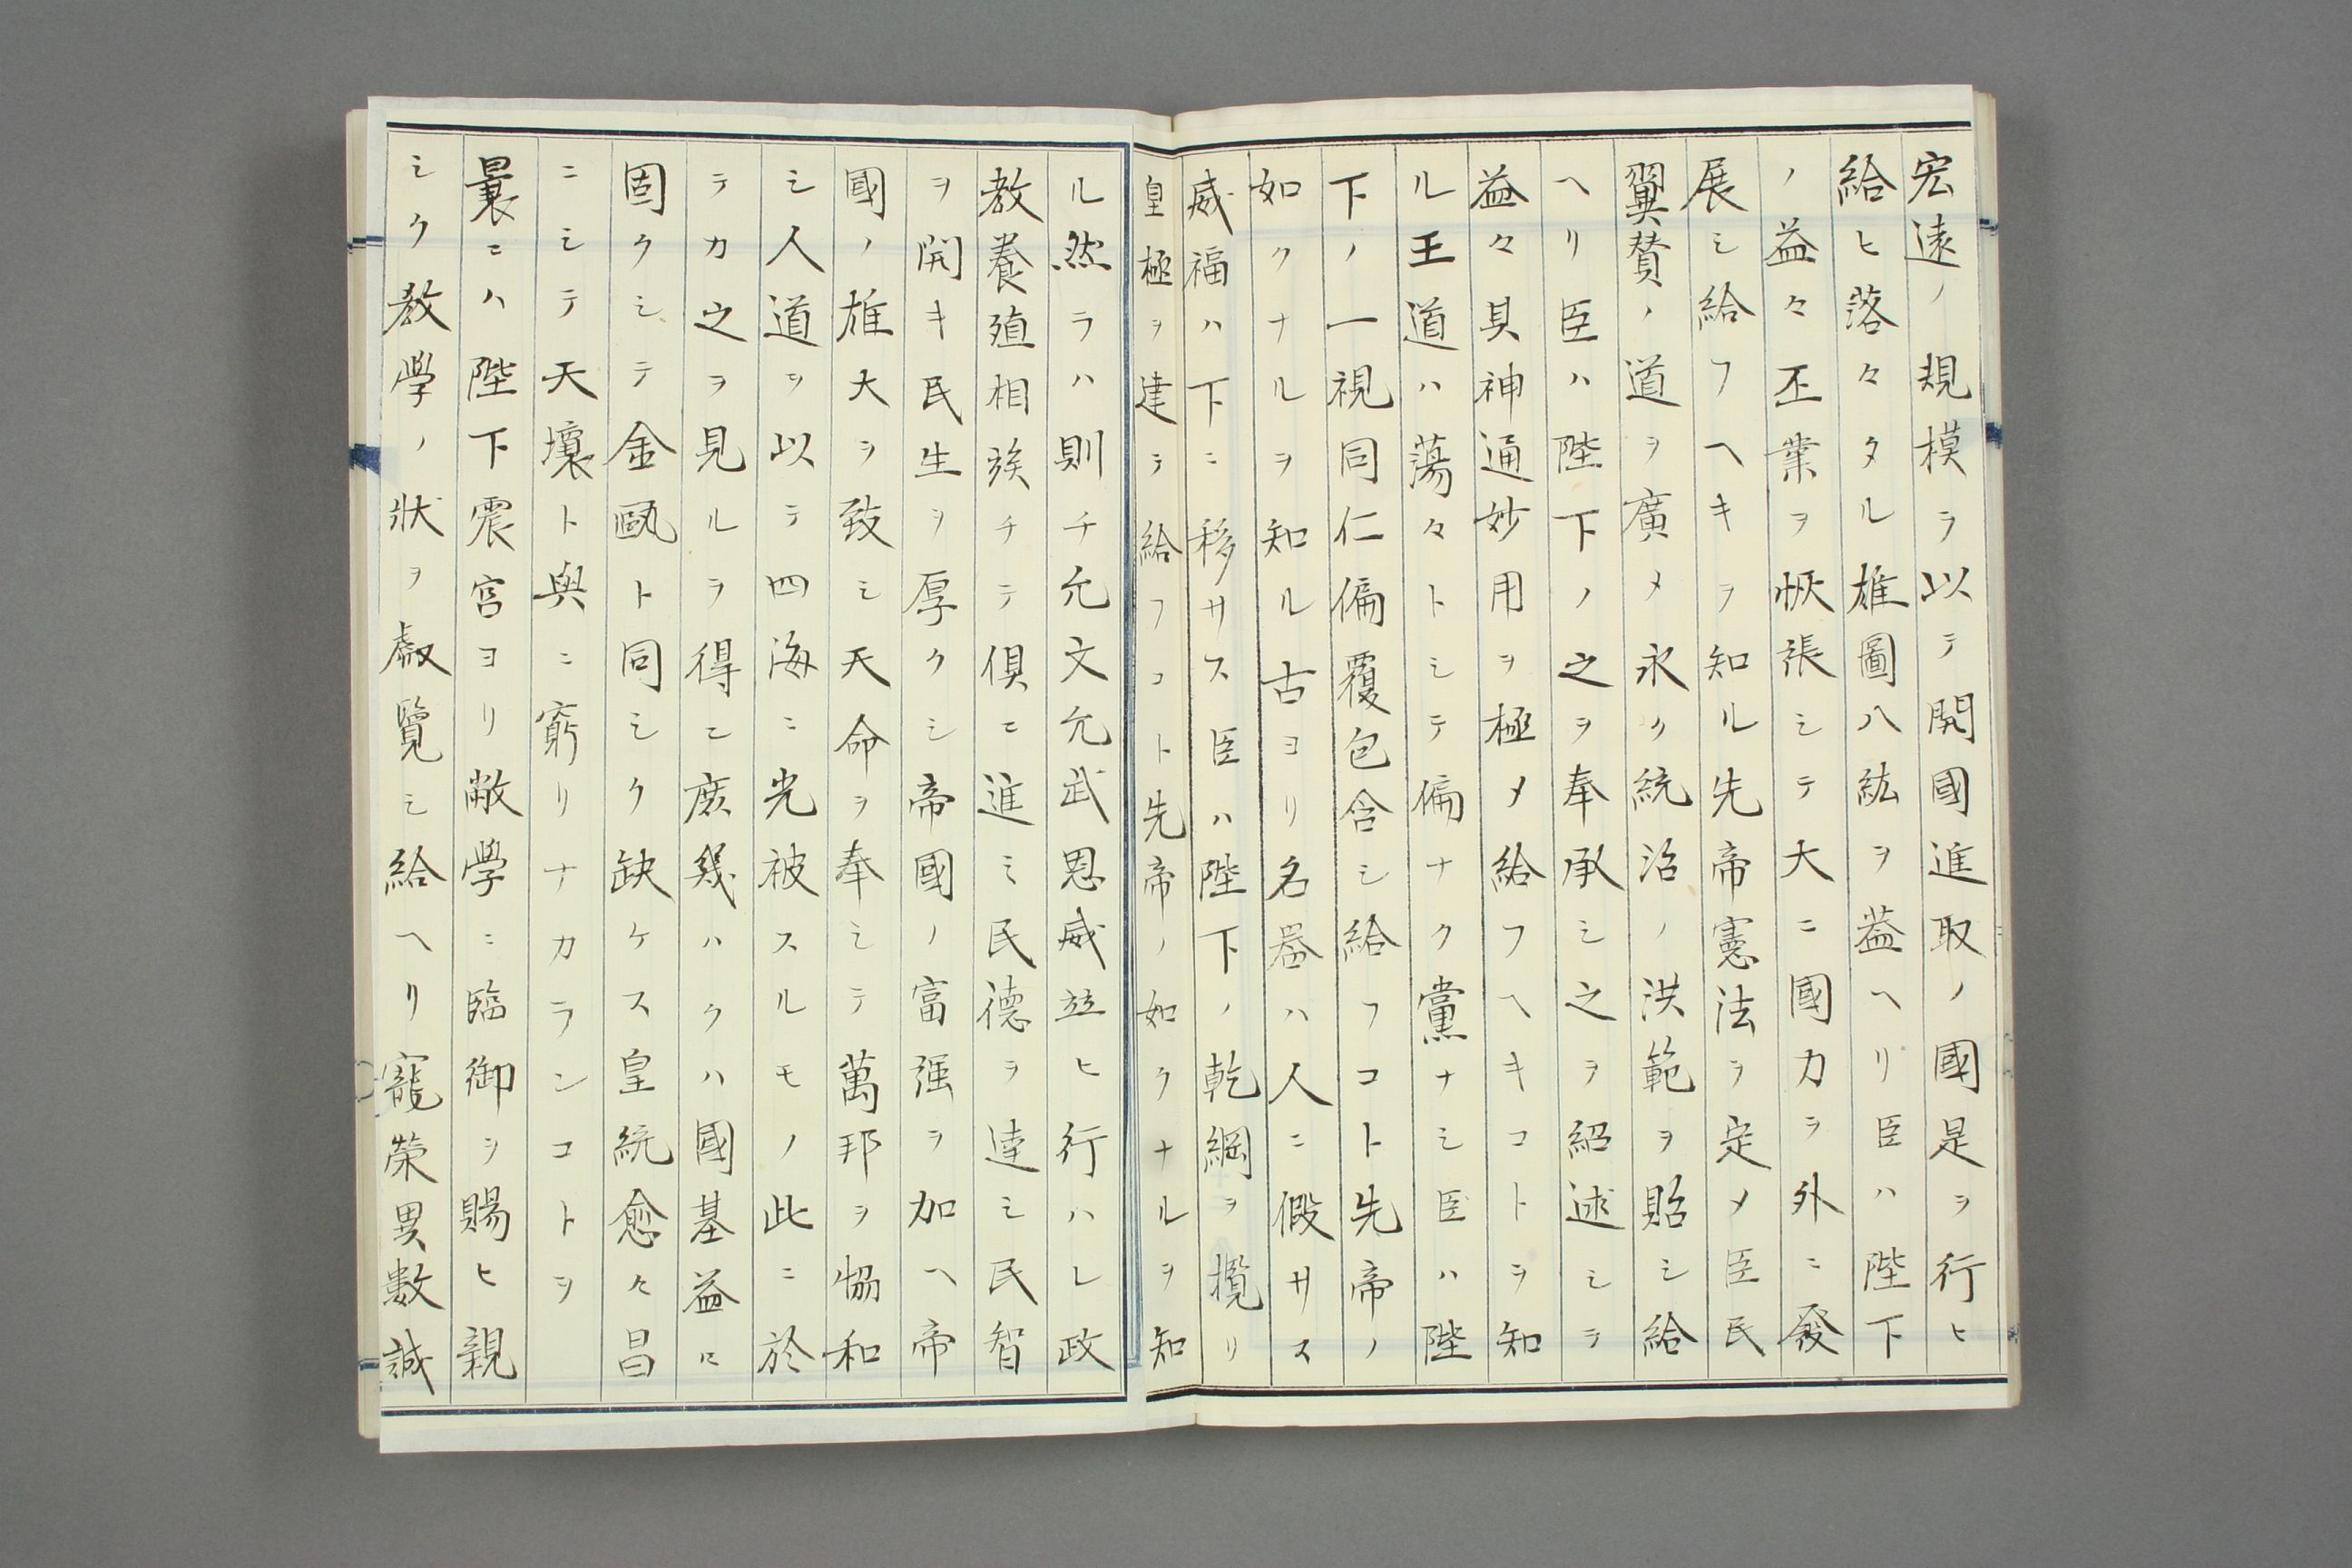 宏遠ノ規模ヲ以テ開國進取ノ國是ヲ行ヒ
給ヒ落々タル雄圖八紘ヲ蓋ヘリ臣ハ陛下
ノ益々丕業ヲ恢張シテ大ニ國力ヲ外ニ發
展シ給フヘキヲ知ル先帝憲法ヲ定メ臣民
翼賛ノ道ヲ廣メ永ク統治ノ洪範ヲ貽シ給
ヘリ臣ハ陛下ノ之ヲ奉承シ之ヲ紹述シヲ
益々其神通妙用ヲ極メ給フヘキコトヲ知
ル王道ハ蕩々トシテ偏ナク黨ナシ臣ハ陛
下ノ一視同仁偏覆包含シ給フコト先帝ノ
如クナルヲ知ル古ヨリ名器ハ人ニ假サス
威福ハ下ニ移サス臣ハ陛下ノ乾綱ヲ攬リ
皇極ヲ建テ給フコト先帝ノ如クナルヲ知
ル然ラハ則チ允文允武恩威並ヒ行ハレ政
教養殖相族チテ倶ニ進ミ民德ヲ達シ民智
ヲ開キ民生ヲ厚クシ帝國ノ富强ヲ加ヘ帝
國ノ雄大ヲ致シ天命ヲ奉シテ萬邦ヲ恊和
シ人道ヲ以テ四海ニ光被スルモノ此ニ於
テカ之ヲ見ルヲ得ン庶幾ハクハ國基益々
固クシテ金甌ト同シク缺ケス皇統愈々昌
ニシテ天壤ト與ニ窮リナカランコトヲ
曩ニハ陛下震宮ヨリ敝學ニ臨御ヲ賜ヒ親
シク教學ノ狀ヲ叡覽シ給ヘリ寵榮異數誠